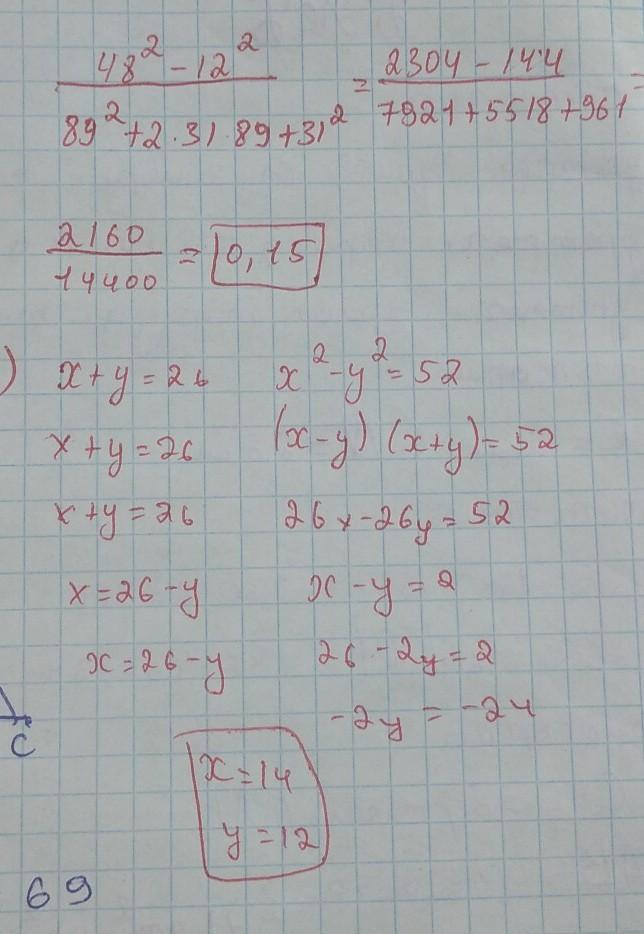 48² - 12² / 89² + 2 · 31 · 89 + 31² = 2304 - 144 / 7921 + 5518 + 961 =
2160 / 14400 = 0,15
) x + y = 26 x² - y² = 52
x + y = 26 (x - y) (x + y) = 52
x + y = 26 26x - 26y = 52
x = 26 - y x - y = 2
x = 26 - y 26 - 2y = 2
-2y = -24
C
x = 14
y = 12
69